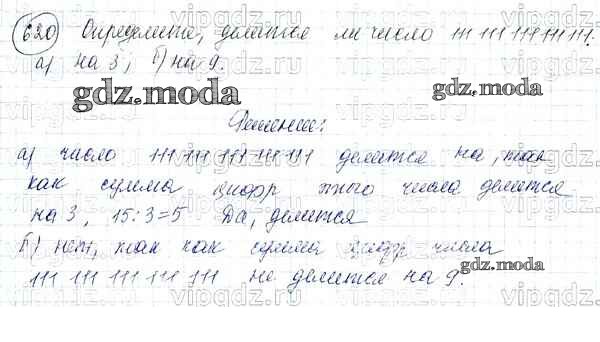 620 Определите, делится ли число 111 111 111 111 111.
а) на 3; б) на 9.
gdz.moda
gdz.moda
Решение:
а) число 111 111 111 111 111 делится на, так
как сумма цифр этого числа делится
на 3, 15:3=5 Да, делится
б) нет, так как сумма цифр числа
111 111 111 111 111 не делится на 9.
gdz.moda